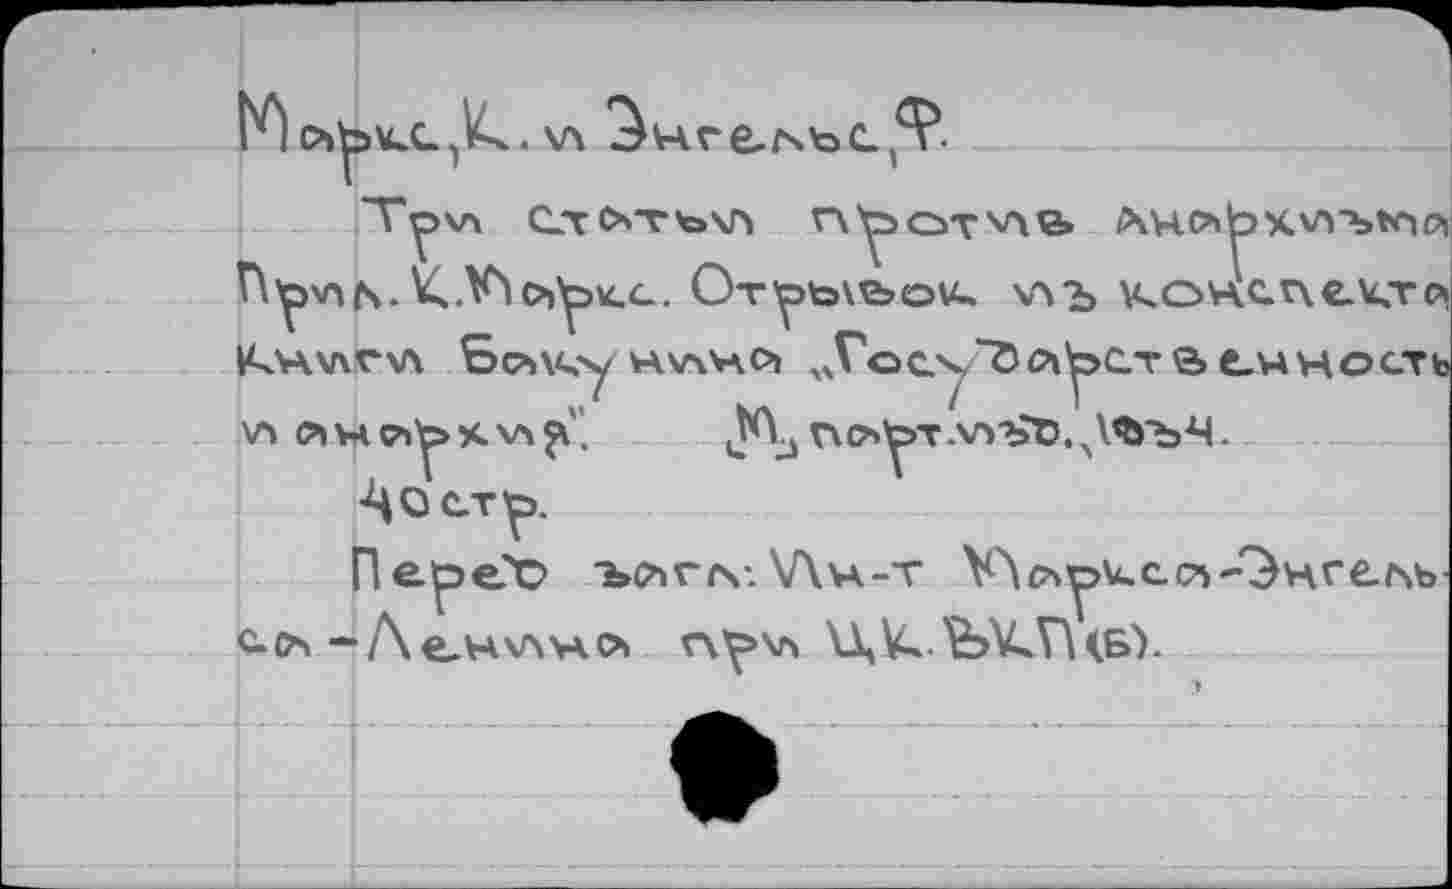 Маркс,К. и Энгельс,Ф.
Три статьи против анархизма
Прил. К.Маркс. Отрывок из конспекта
книги Бакунина „Государственность
и анархия". [М.] парт.изд.,1934.
40 стр.
Перед загл: Ин-т Маркса-Энгель-
са-Ленина при ЦК.ВКП(б).